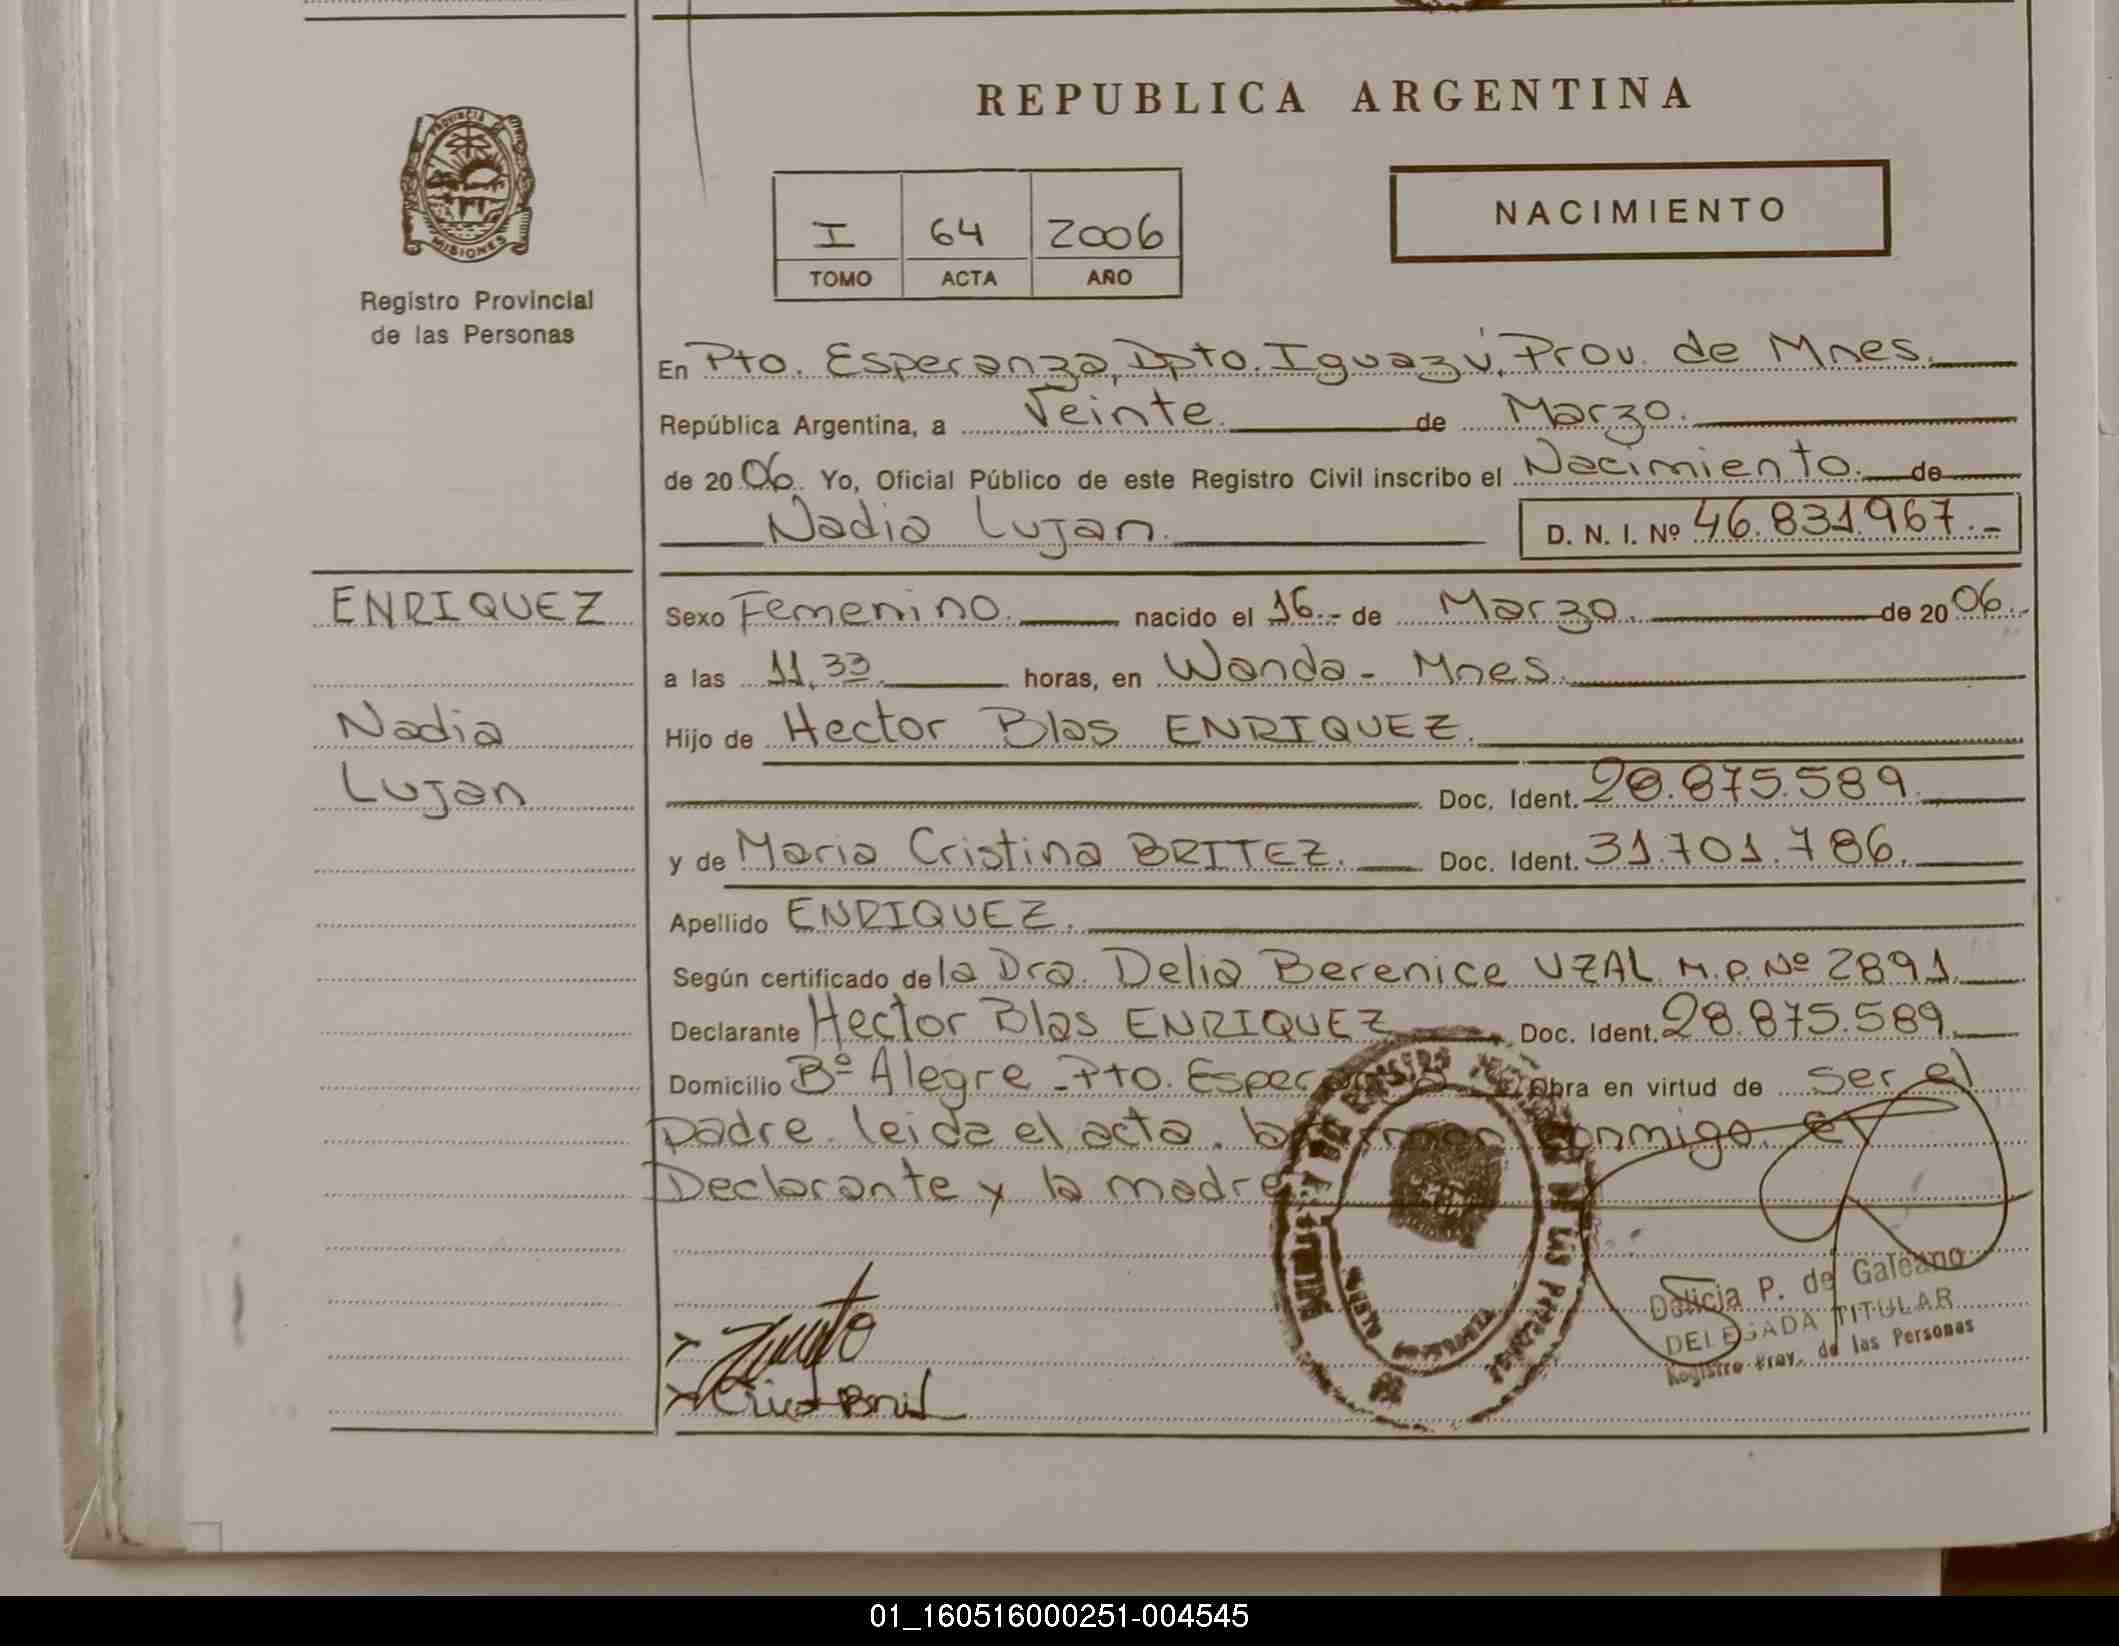 REPUBLICA ARGENTINA
PROVINCIA DE MISIONES
Registro Provincial
de las Personas
I 64 2006
TOMO ACTA AÑO
NACIMIENTO
En Pto. Esperanza, Dpto. Iguazú, Prov. de Mnes.
República Argentina, a Veinte. de Marzo.
de 2006. Yo, Oficial Público de este Registro Civil inscribo el Nacimiento. de
Nadia Lujan. D. N. I. Nº 46.831.967.-
ENRIQUEZ
Nadia
Lujan
Sexo Femenino. nacido el 16.- de Marzo. de 2006.-
a las 11,33. horas, en Wanda - Mnes.
Hijo de Hector Blas ENRIQUEZ.
Doc. Ident. 28.875.589.
y de Maria Cristina BRITEZ. Doc. Ident. 31.701.786.
Apellido ENRIQUEZ.
Según certificado de la Dra. Delia Berenice UZAL. M.P. Nº 2891.
Declarante Hector Blas ENRIQUEZ Doc. Ident. 28.875.589.
Domicilio Bº Alegre - Pto. Esperanza Obra en virtud de ser el
padre. leida el acta. la firman conmigo. el
Declarante y la madre.
Delicia P. de Galeano
DELEGADA TITULAR
Registro Prov. de las Personas
01_160516000251-004545